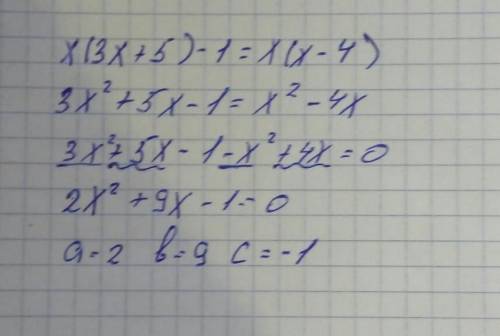 x(3x+5)-1=x(x-4)
3x²+5x-1=x²-4x
3x²+5x-1-x²+4x=0
2x²+9x-1=0
a=2 b=9 c=-1